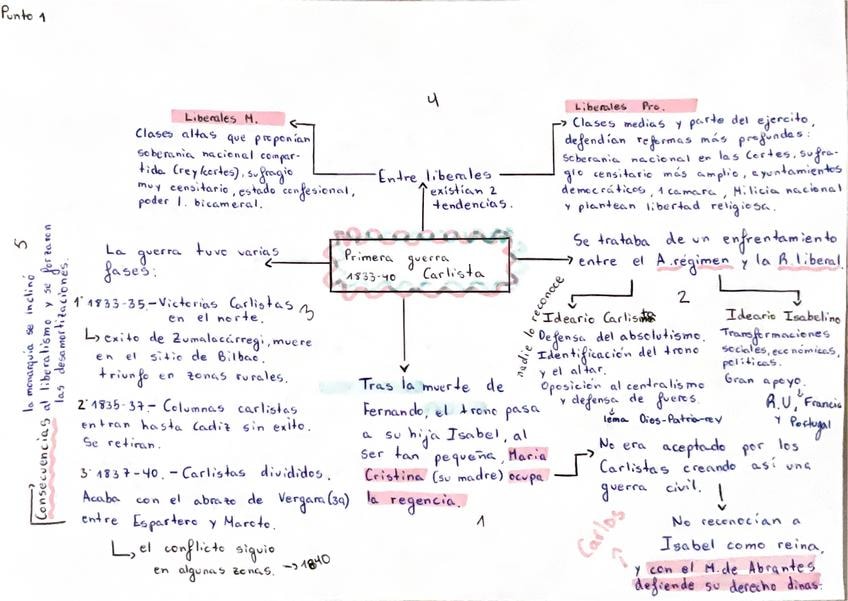 Punto 1
4
Liberales M.
Clases altas que proponían
soberanía nacional compar-
tida (rey/cortes), sufragio
muy censitario, estado confesional,
poder l. bicameral.
Entre liberales
existían 2
tendencias.
Liberales Pro.
Clases medias y parte del ejercito,
defendían reformas más profundas:
soberanía nacional en las Cortes, sufra-
gio censitario más amplio, ayuntamientos
democráticos, 1 camara, Milicia nacional
y plantean libertad religiosa.
Primera guerra
1833-40 Carlista
Se trataba de un enfrentamiento
entre el A.régimen y la R.liberal.
2
nadie lo reconoce
Ideario Carlista
Defensa del absolutismo.
Identificación del trono
y el altar.
Oposición al centralismo
y defensa de fueros.
lema Dios-Patria-rey
Ideario Isabelino
Transformaciones
sociales, económicas,
políticas.
Gran apoyo.
R.U, Francia
y Portugal
Tras la muerte de
Fernando, el trono pasa
a su hija Isabel, al
ser tan pequeña, Maria
Cristina (su madre) ocupa
la regencia.
1
No era aceptado por los
Carlistas creando así una
guerra civil.
No reconocían a
Isabel como reina,
y con el M.de Abrantes
defiende su derecho dinas.
Carlos
La guerra tuvo varias
fases:
3
1º 1833-35.-Victorias Carlistas
en el norte.
exito de Zumalacárregi, muere
en el sitio de Bilbao.
triunfo en zonas rurales.
2º 1835-37.- Columnas carlistas
entran hasta Cadiz sin exito.
Se retiran.
3º 1837-40.- Carlistas divididos.
Acaba con el abrazo de Vergara (39)
entre Espartero y Maroto.
el conflicto siguio
en algunas zonas. → 1840
5
Consecuencias
la monarquía se inclinó
al liberalismo y se forzaron
las desamortizaciones.